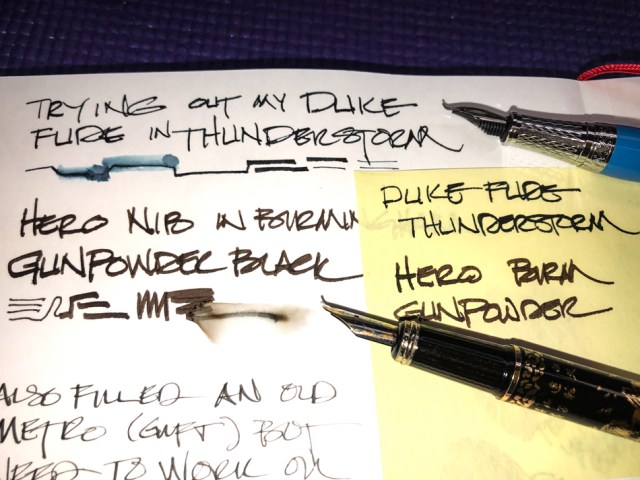 TRYING OUT MY DUKE
FUDE IN THUNDERSTORM
HERO NIB IN BURMIN
GUNPOWDER BLACK
ALSO FILLED AN OLD
METRO (GIFT) BUT
NEED TO WORK ON
DUKE FUDE
THUNDERSTORM
HERO BURM
GUNPOWDER